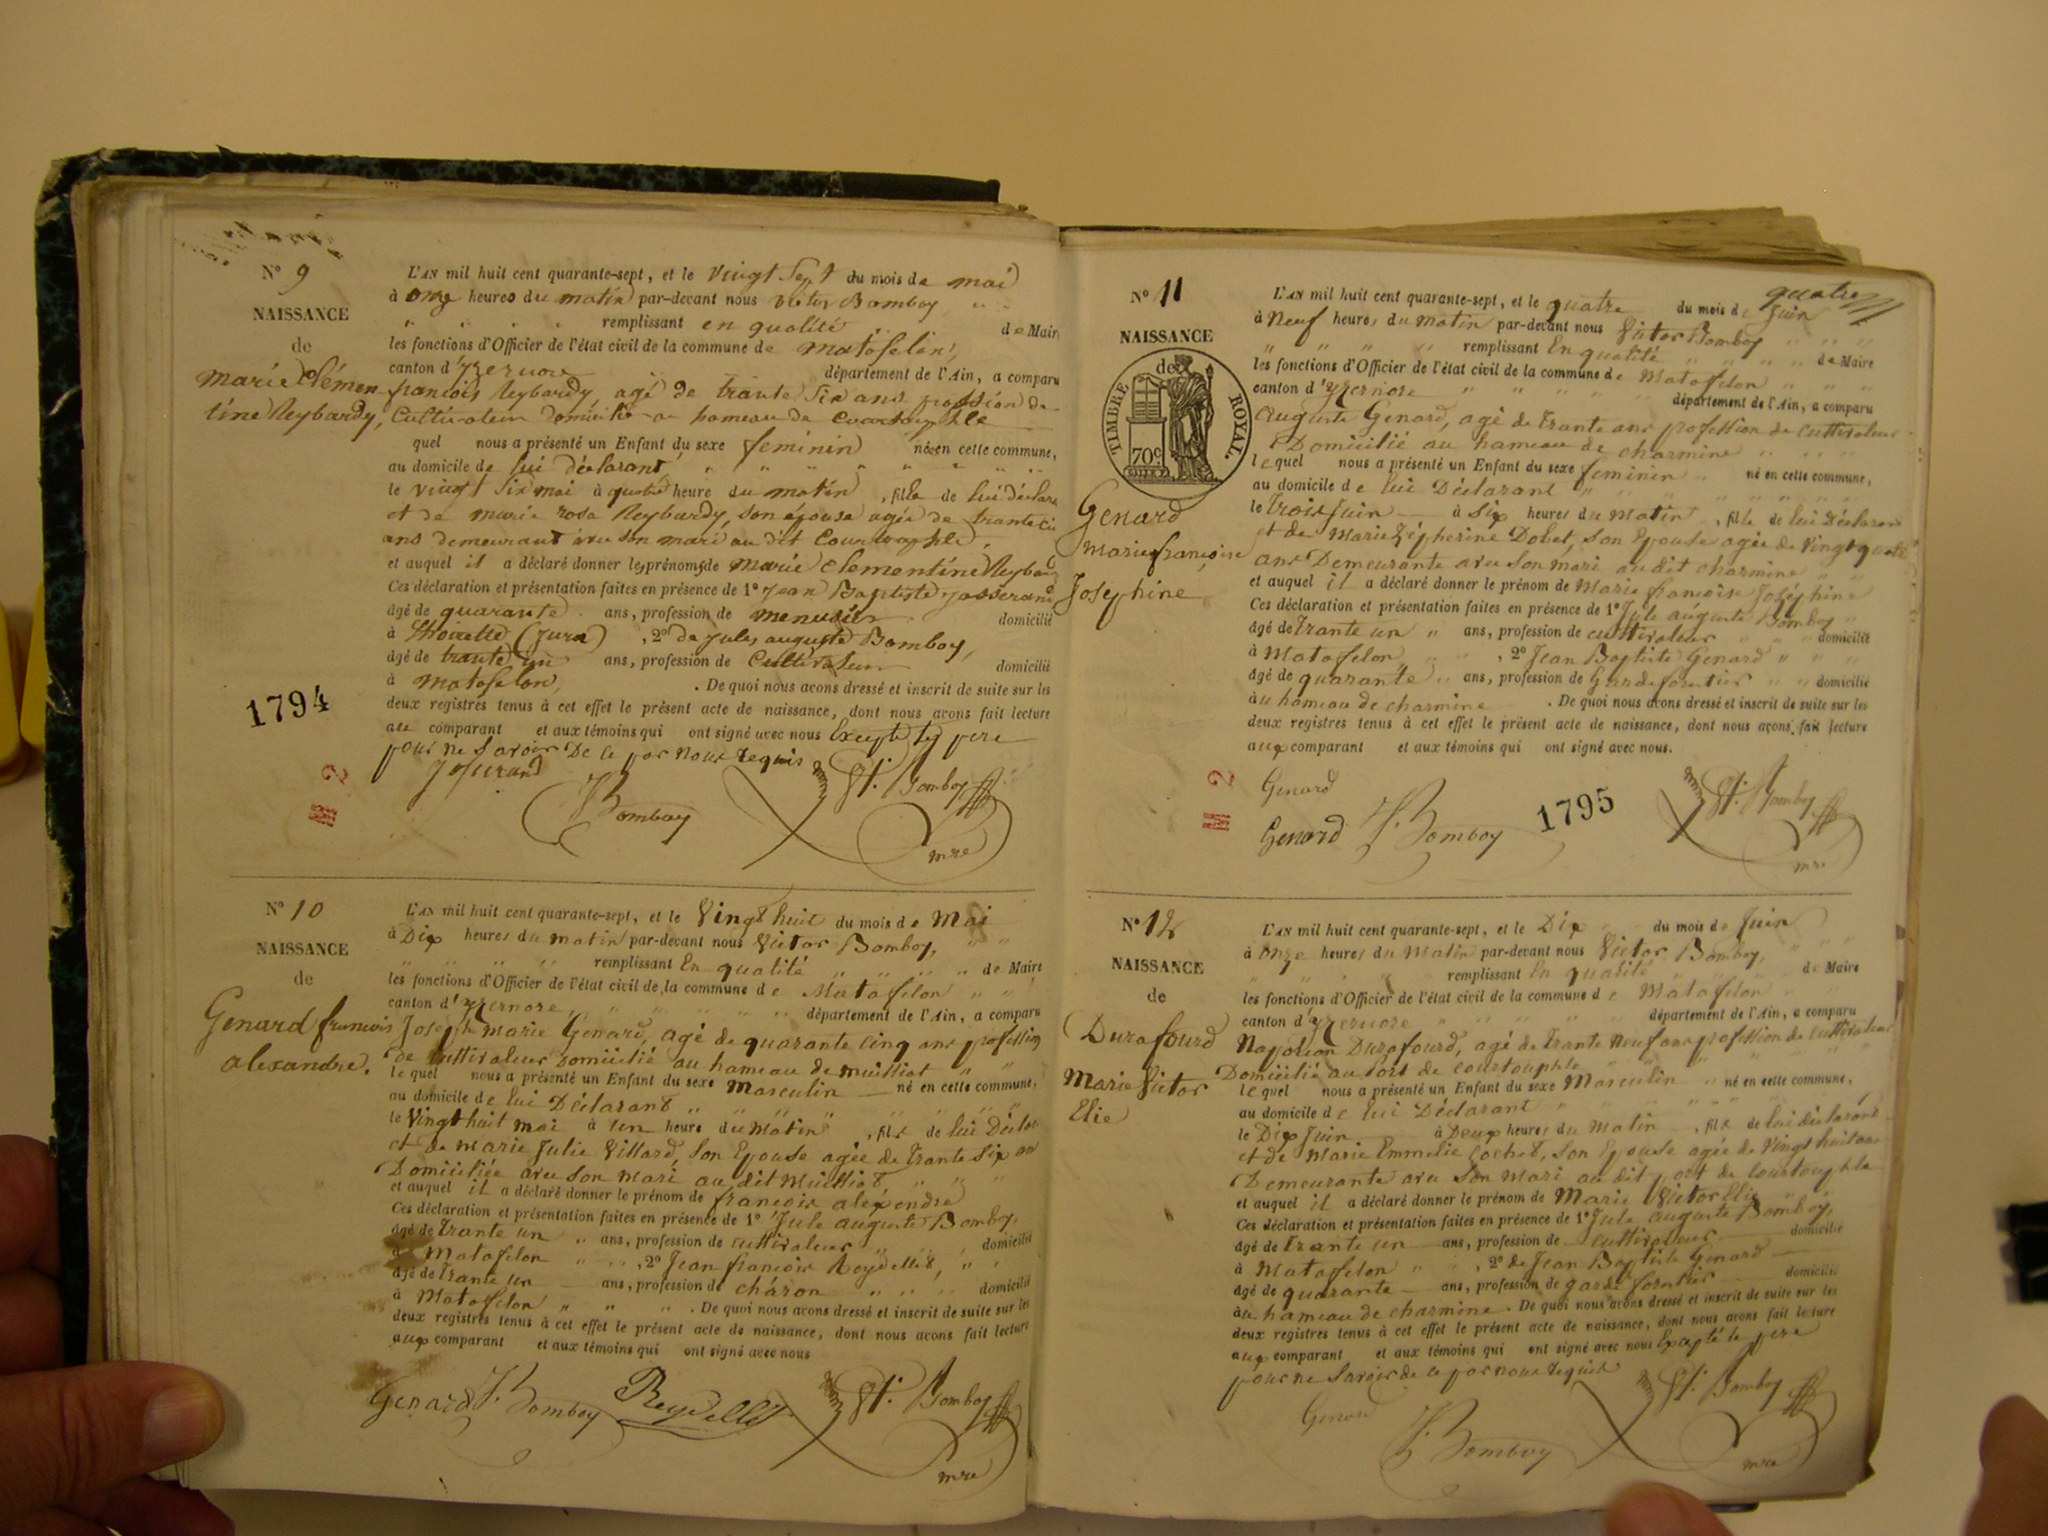 N° 9
NAISSANCE
de
Marie Clémen
tine Reybardy,
1794
L'AN mil huit cent quarante-sept, et le vingt sept du mois de mai
à onze heures du matin par-devant nous victor Bomboy
remplissant en qualité de Maire
les fonctions d'Officier de l'état civil de la commune de matafelon,
canton d'yzernore département de l'Ain, a comparu
francois Reybardy, agé de trante six ans profession de
Cultivateur domicilié au hameau de Courtouphle
quel nous a présenté un Enfant du sexe feminin né en cette commune,
au domicile de lui déclarant
le vingt six mai à quatre heure du matin, fille de lui déclara
et de marie rosa Reybardy, son épouse agée de trante
ans demeurant avec son mari au dit Courtouphle,
et auquel il a déclaré donner les prénoms de marie clementine Reybar
Ces déclaration et présentation faites en présence de 1° Jean Baptiste Josserand
âgé de quarante ans, profession de menusier domicilié
à thoirette (Jura), 2° de Jules auguste Bomboy,
âgé de trante un ans, profession de cultivateur domicilié
à matafelon, . De quoi nous avons dressé et inscrit de suite sur les
deux registres tenus à cet effet le présent acte de naissance, dont nous avons fait lecture
au comparant et aux témoins qui ont signé avec nous Excepté le pere
pour ne savoir De ce par nous requis
Josserand
Bomboy
Vt. Bomboy
mre
N° 10
NAISSANCE
de
Genard francois
alexandre.
L'AN mil huit cent quarante-sept, et le Vingt huit du mois de Mai
à Dix heures du matin par-devant nous Victor Bomboy,
remplissant En qualité de Maire
les fonctions d'Officier de l'état civil de la commune de Matafelon
canton d'yzernore, département de l'Ain, a comparu
Joseph marie Genard, agé de quarante cinq ans profession
de cultivateur domicilié au hameau de muilliat
lequel nous a présenté un Enfant du sexe Masculin né en cette commune,
au domicile de lui Déclarant
le Vingt huit mai à un heure du Matin, fils de lui Déclar
et de marie Julie Villard, son Epouse agée de trante six an
Domiciliée avec son mari au dit Muilliat
et auquel il a déclaré donner le prénom de francois aléxendre
Ces déclaration et présentation faites en présence de 1° Jule auguste Bomboy,
âgé de trante un ans, profession de cultivateur domicilié
à Matafelon, 2° Jean francois Reydellet,
âgé de trante un ans, profession de charon domicilié
à Matafelon . De quoi nous avons dressé et inscrit de suite sur les
deux registres tenus à cet effet le présent acte de naissance, dont nous avons fait lecture
aux comparant et aux témoins qui ont signé avec nous
Genard
Bomboy
Reydellet
Vt. Bomboy
mre
quatre
N° 11
NAISSANCE
de
TIMBRE ROYAL.
70c
Genard
Marie françoise
Josephine
L'AN mil huit cent quarante-sept, et le quatre du mois de Juin
à Neuf heures du Matin par-devant nous Victor Bomboy
remplissant En qualité de Maire
les fonctions d'Officier de l'état civil de la commune de Matafelon
canton d'yzernore département de l'Ain, a comparu
Auguste Genard, agé de trante ans profession de cultivateur
Domicilié au hameau de charmine
lequel nous a présenté un Enfant du sexe feminin né en cette commune,
au domicile de lui Déclarant
le trois Juin à six heures du Matin, fille de lui Déclaran
et de Marie Zépherine Dolet, son Epouse agée de vingt quatr
ans Demeurante avec son mari au dit charmine
et auquel il a déclaré donner le prénom de Marie francoise Joséphine
Ces déclaration et présentation faites en présence de 1° Jule auguste Bomboy
âgé de trante un ans, profession de cultivateur domicilié
à Matafelon, 2° Jean Baptiste Genard
âgé de quarante ans, profession de Garde forestier domicilié
au hameau de charmine . De quoi nous avons dressé et inscrit de suite sur les
deux registres tenus à cet effet le présent acte de naissance, dont nous avons fait lecture
aux comparant et aux témoins qui ont signé avec nous.
Genard
Genard
Bomboy
1795
Vt. Bomboy
mre
N° 12
NAISSANCE
de
Durafourd
Marie Victor
Elie
L'AN mil huit cent quarante-sept, et le Dix du mois de Juin
à onze heures du Matin par-devant nous Victor Bomboy,
remplissant En qualité de Maire
les fonctions d'Officier de l'état civil de la commune de Matafelon
canton d'yzernore département de l'Ain, a comparu
Napoléon Durafourd, agé de trante Neuf ans profession de cultivateur
Domicilié au Port de courtouphle
lequel nous a présenté un Enfant du sexe Masculin né en cette commune,
au domicile de lui Déclarant
le Dix Juin à Deux heures du Matin, fils de lui déclarant
et de Marie Emmelie Cochet, son Epouse agée de Vingt huit ans
Demeurante avec son Mari au dit port de Courtouphle
et auquel il a déclaré donner le prénom de Marie Victor Elie
Ces déclaration et présentation faites en présence de 1° Jule auguste Bomboy,
âgé de trante un ans, profession de cultivateur domicilié
à Matafelon, 2° de Jean Baptiste Genard
âgé de quarante ans, profession de garde forestier domicilié
au hameau de charmine . De quoi nous avons dressé et inscrit de suite sur les
deux registres tenus à cet effet le présent acte de naissance, dont nous avons fait lecture
aux comparant et aux témoins qui ont signé avec nous Excepté le pere
pour ne savoir de ce par nous requis
Genard
Bomboy
Vt. Bomboy
mre